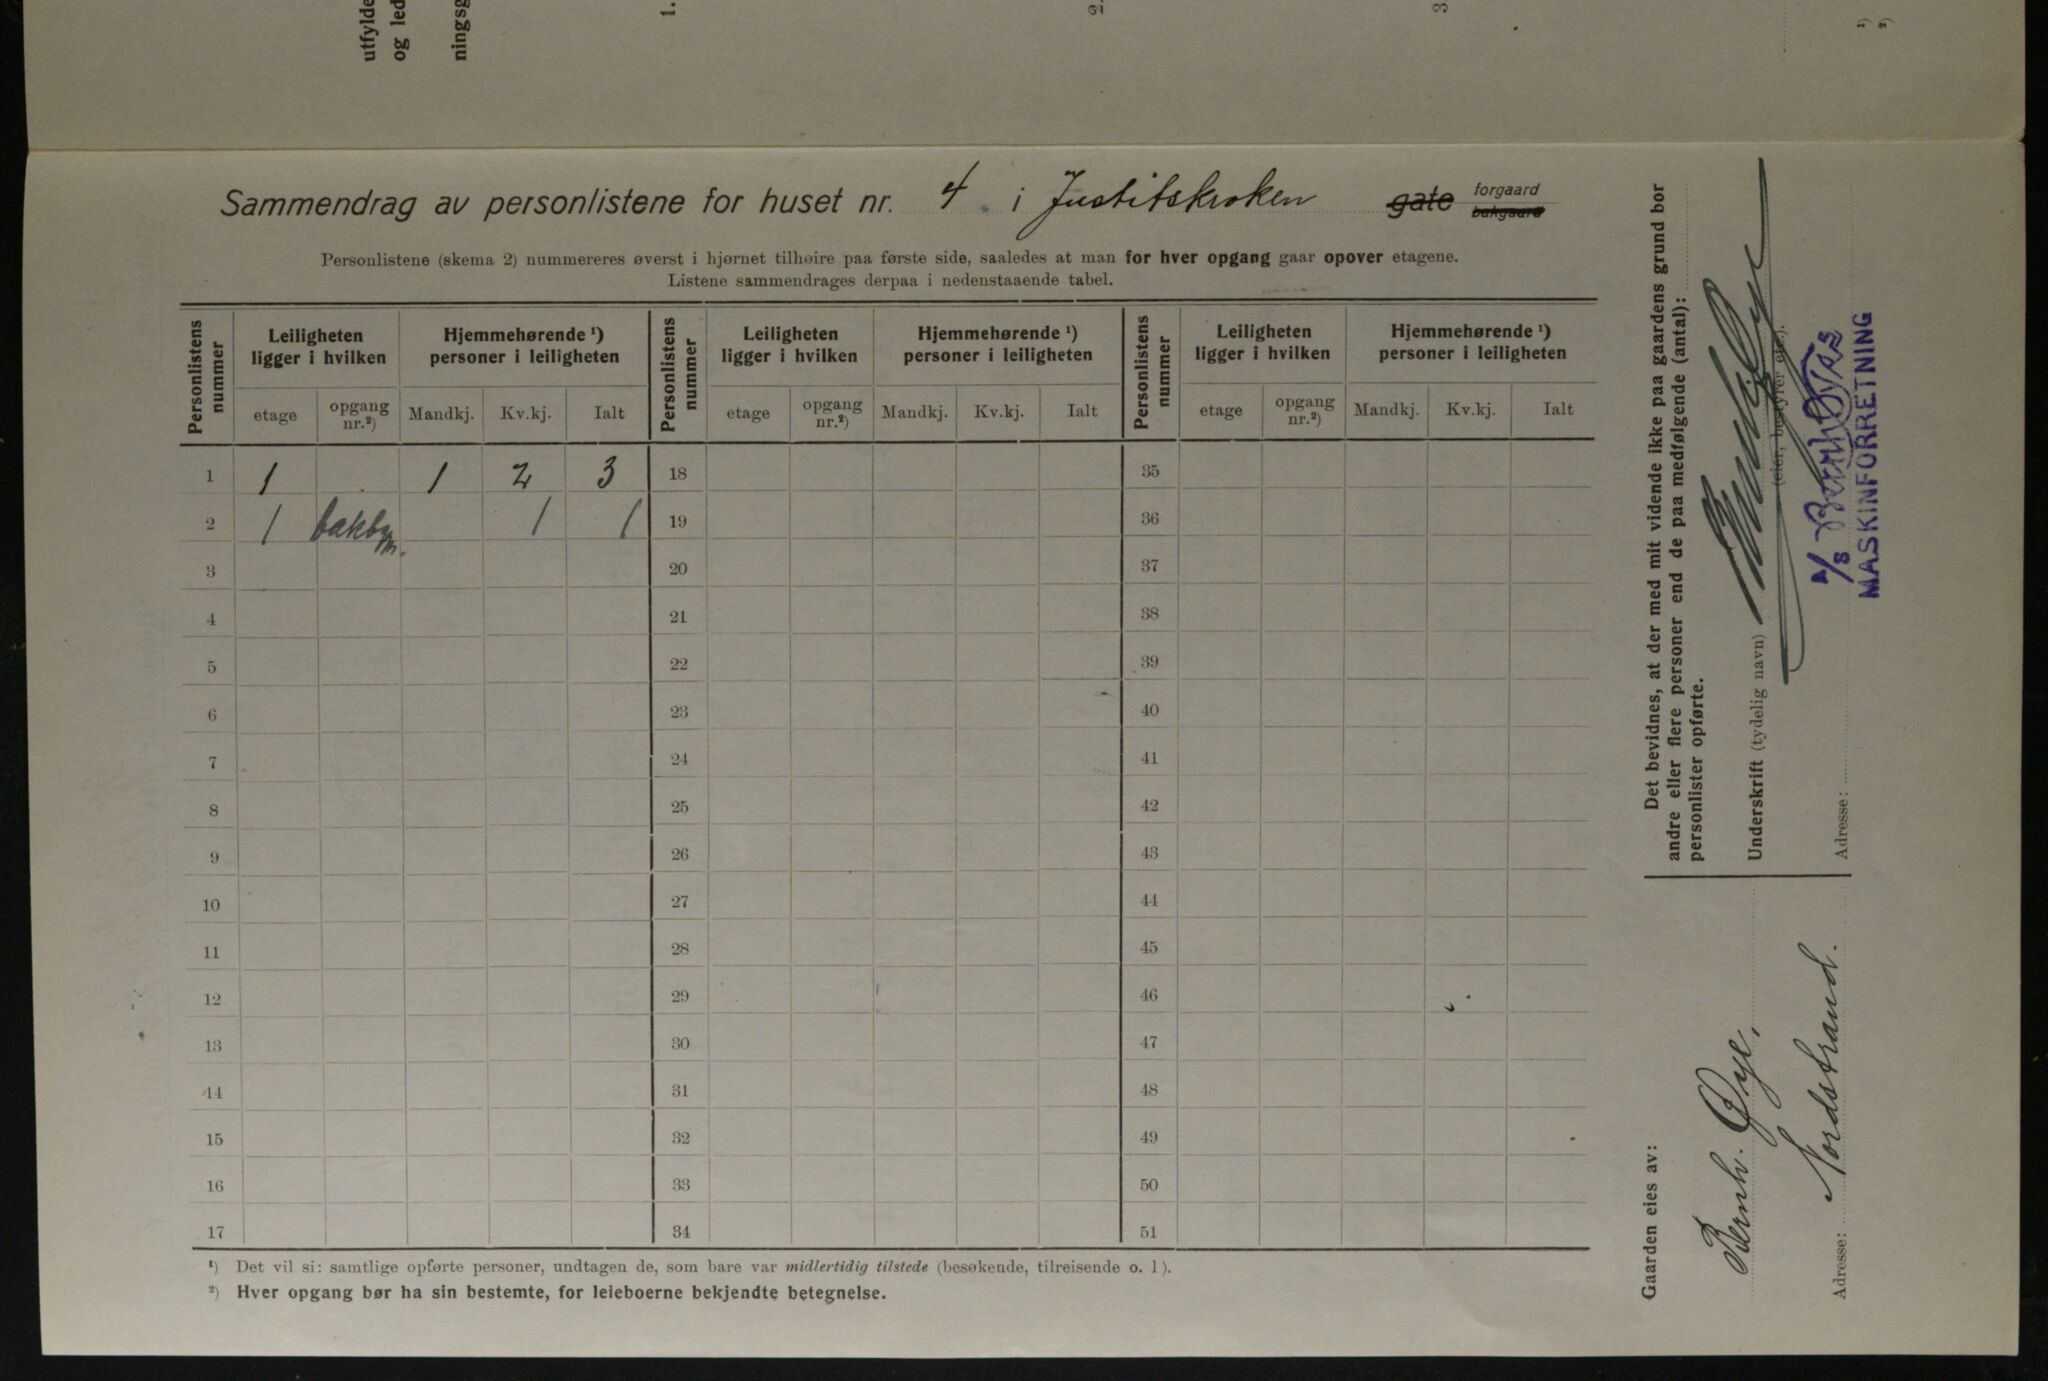 utfylde
og led
ningsg
1.
2.
3
¹)
²)
Sammendrag av personlistene for huset nr. 4 i Justitskroken gate forgaard
bakgaard
Personlistene (skema 2) nummereres øverst i hjørnet tilhøire paa første side, saaledes at man for hver opgang gaar opover etagene.
Listene sammendrages derpaa i nedenstaaende tabel.
Personlistens nummer
Leiligheten ligger i hvilken
Hjemmehørende ¹) personer i leiligheten
Personlistens nummer
Leiligheten ligger i hvilken
Hjemmehørende ¹) personer i leiligheten
Personlistens nummer
Leiligheten ligger i hvilken
Hjemmehørende ¹) personer i leiligheten
etage opgang nr.²) Mandkj. Kv.kj. Ialt etage opgang nr.²) Mandkj. Kv.kj. Ialt etage opgang nr.²) Mandkj. Kv.kj. Ialt
1 1 1 2 3 18 35
2 1 bakbygn. 1 1 19 36
3 20 37
4 21 38
5 22 39
6 23 40
7 24 41
8 25 42
9 26 43
10 27 44
11 28 45
12 29 46
13 30 47
14 31 48
15 32 49
16 33 50
17 34 51
¹) Det vil si: samtlige opførte personer, undtagen de, som bare var midlertidig tilstede (besøkende, tilreisende o. l).
²) Hver opgang bør ha sin bestemte, for leieboerne bekjendte betegnelse.
Det bevidnes, at der med mit vidende ikke paa gaardens grund bor
andre eller flere personer end de paa medfølgende (antal):
personlister opførte.
Underskrift (tydelig navn)
(eier, bestyrer etc.).
A/S Bernh. Øye
MASKINFORRETNING
Adresse:
Gaarden eies av:
Bernh. Øye,
Adresse: Nordstrand.